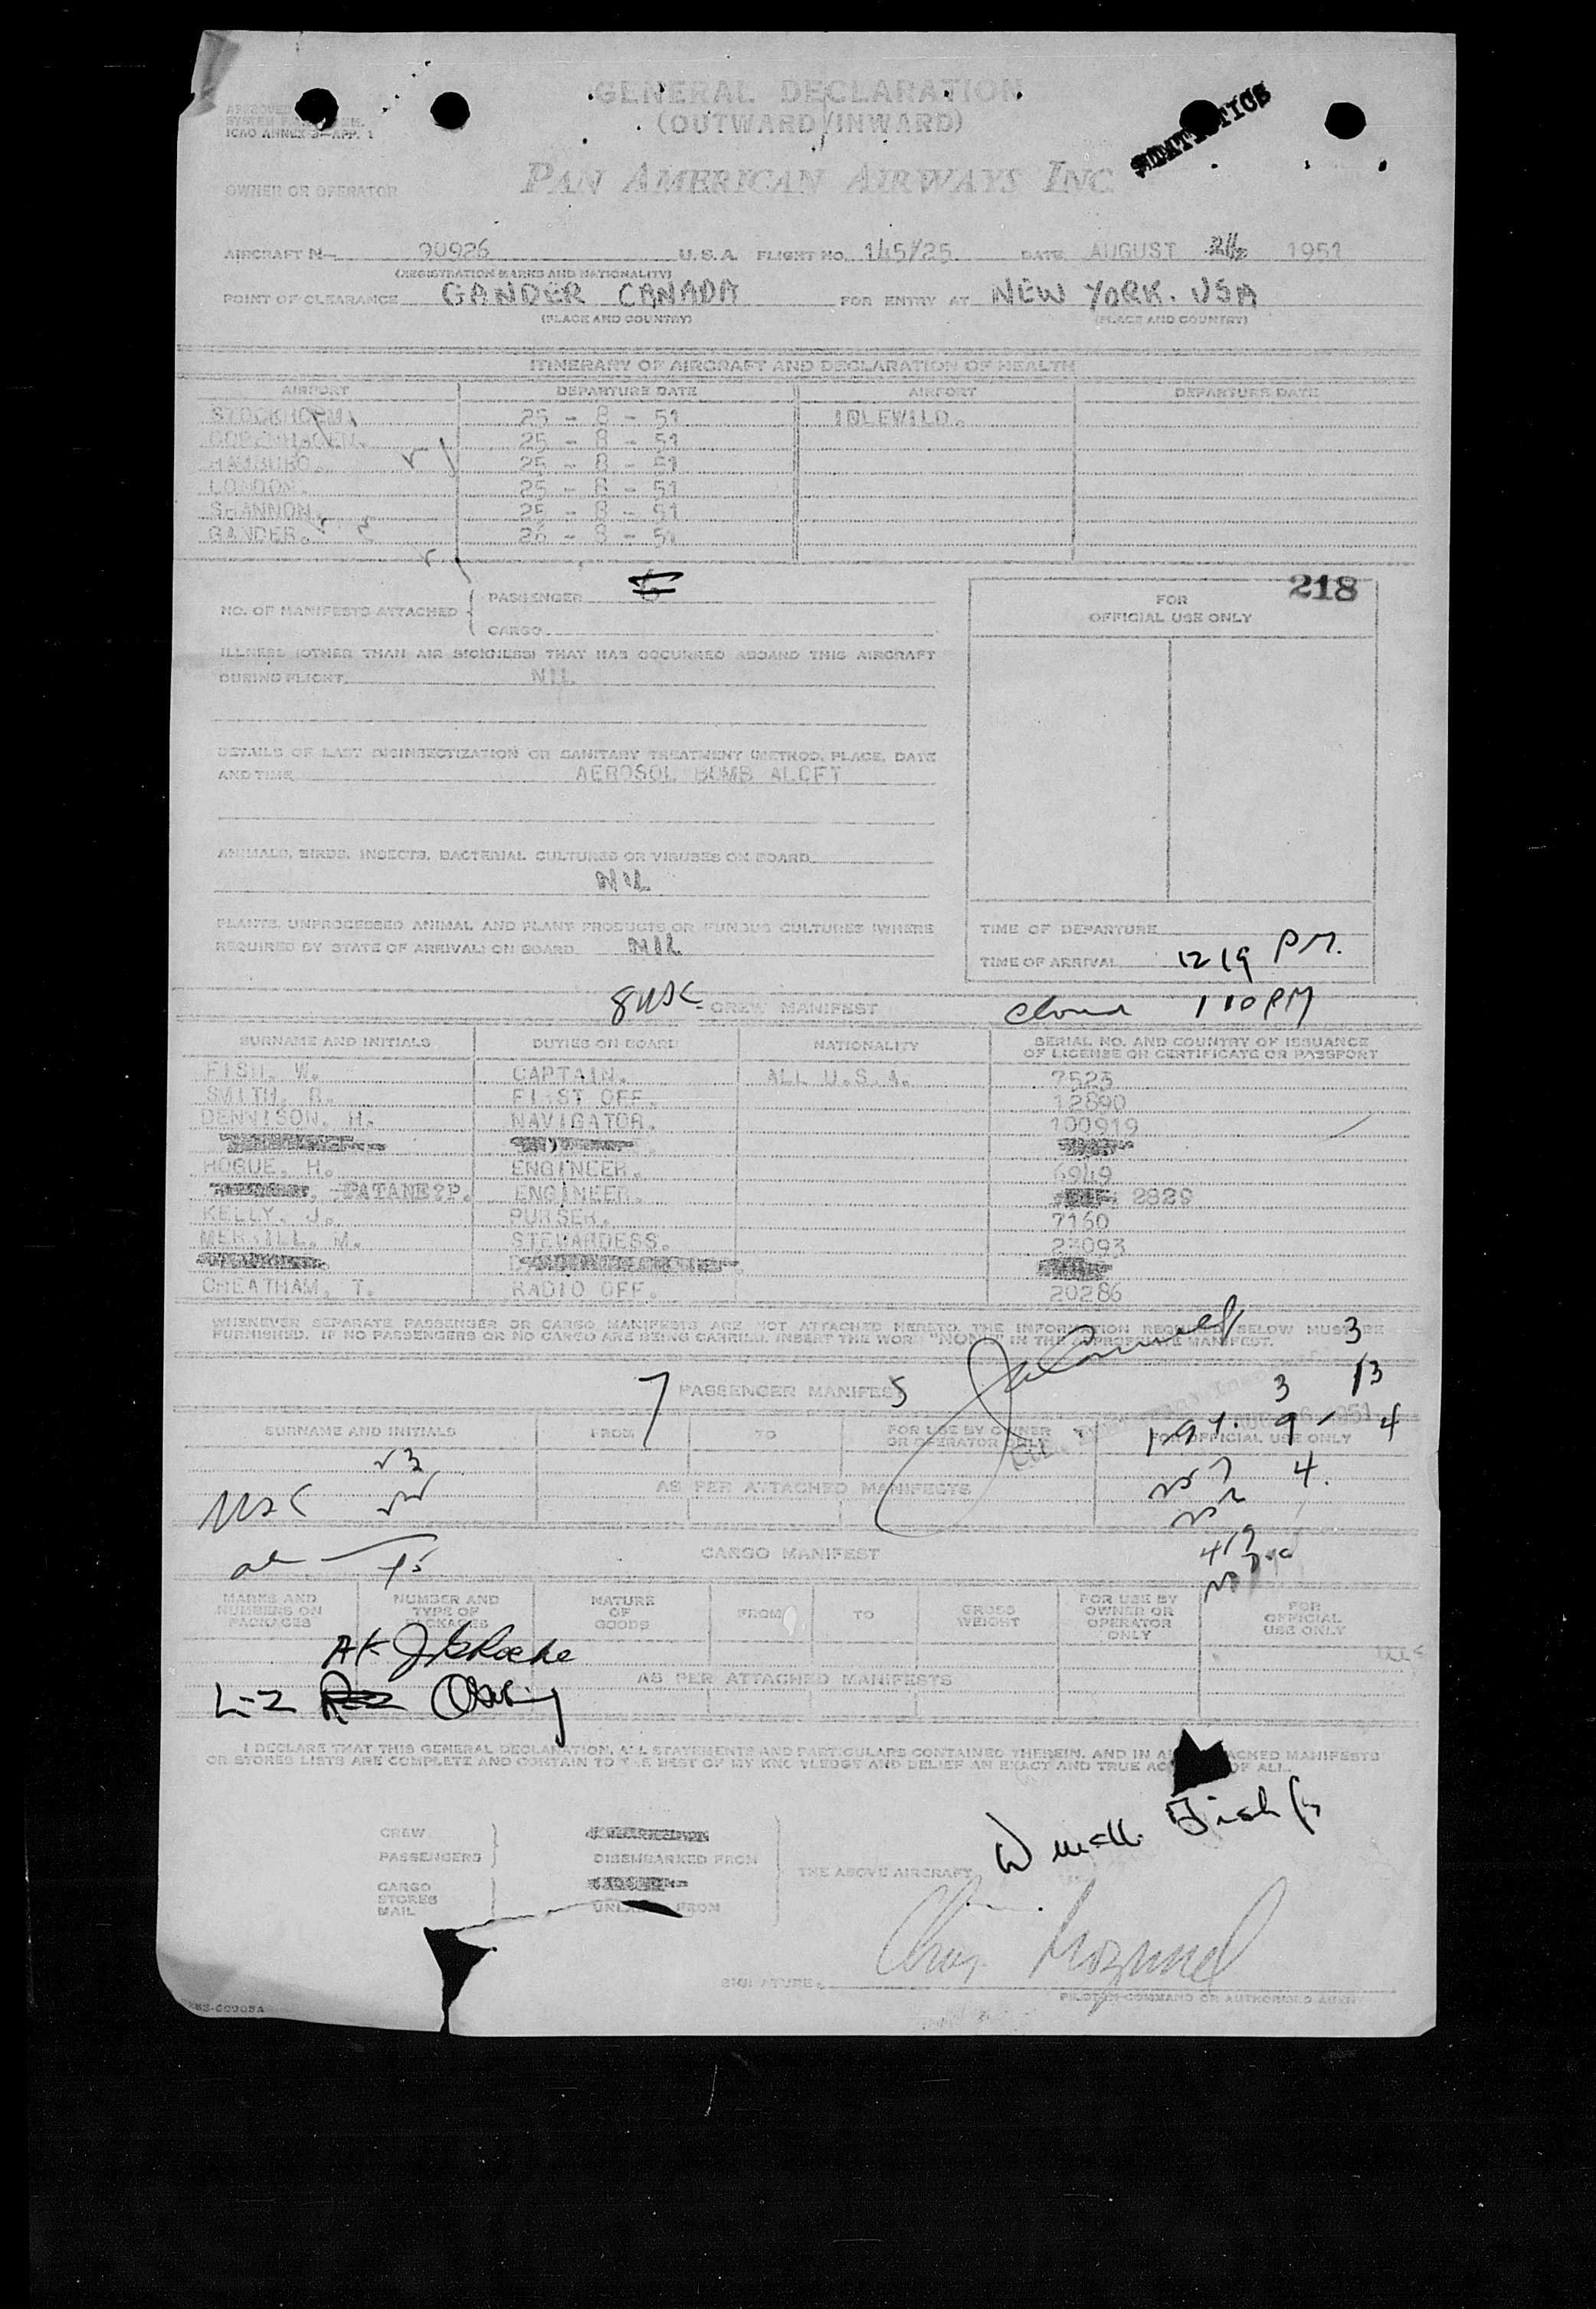 GENERAL DECLARATION
(OUTWARD/INWARD)
APPROVED
ICAO ANNEX 9—APP. 1
STATISTICS
OWNER OR OPERATOR PAN AMERICAN AIRWAYS INC
AIRCRAFT N— 90926 U.S.A. FLIGHT NO. 145/25 DATE AUGUST 1951
(REGISTRATION MARKS AND NATIONALITY)
POINT OF CLEARANCE GANDER CANADA FOR ENTRY AT NEW YORK. USA
(PLACE AND COUNTRY) (PLACE AND COUNTRY)
ITINERARY OF AIRCRAFT AND DECLARATION OF HEALTH
AIRPORT DEPARTURE DATE AIRPORT DEPARTURE DATE
STOCKHOLM. 25 - 8 - 51 IDLEWILD.
COPENHAGEN. 25 - 8 - 51
HAMBURG. 25 - 8 - 51
LONDON. 25 - 8 - 51
SHANNON. 25 - 8 - 51
GANDER. 26 - 8 - 51
218
NO. OF MANIFESTS ATTACHED
PASSENGER
CARGO
FOR
OFFICIAL USE ONLY
ILLNESS (OTHER THAN AIR SICKNESS) THAT HAS OCCURRED ABOARD THIS AIRCRAFT
DURING FLIGHT NIL
DETAILS OF LAST DISINSECTIZATION OR SANITARY TREATMENT (METHOD, PLACE, DATE
AND TIME AEROSOL BOMB ALOFT
ANIMALS, BIRDS, INSECTS, BACTERIAL CULTURES OR VIRUSES ON BOARD
NIL
PLANTS, UNPROCESSED ANIMAL AND PLANT PRODUCTS OR FUNGUS CULTURES (WHERE
REQUIRED BY STATE OF ARRIVAL) ON BOARD NIL
TIME OF DEPARTURE
TIME OF ARRIVAL 12 19 PM.
8 USC CREW MANIFEST 1 10 PM
SURNAME AND INITIALS DUTIES ON BOARD NATIONALITY SERIAL NO. AND COUNTRY OF ISSUANCE
OF LICENSE OR CERTIFICATE OR PASSPORT
FISH. W. CAPTAIN. ALL U.S.A. 7523
SMITH. R. FIRST OFF. 12890
DENNISON. H. NAVIGATOR. 100919
HOGUE. H. ENGINEER. 6949
PATANE?P. ENGINEER. 2829
KELLY. J. PURSER. 7160
MERRILL. M. STEWARDESS. 23093
CHEATHAM. T. RADIO OFF. 20286
WHENEVER SEPARATE PASSENGER OR CARGO MANIFESTS ARE NOT ATTACHED HERETO, THE INFORMATION REQUIRED BELOW MUST BE
FURNISHED. IF NO PASSENGERS OR NO CARGO ARE BEING CARRIED, INSERT THE WORD "NONE" IN THE APPROPRIATE MANIFEST.
3
7 PASSENGER MANIFEST 3 13
SURNAME AND INITIALS FROM TO FOR USE BY OWNER
OR OPERATOR ONLY FOR OFFICIAL USE ONLY
AS PER ATTACHED MANIFESTS
USC
CARGO MANIFEST
MARKS AND
NUMBERS ON
PACKAGES
NUMBER AND
TYPE OF
PACKAGES
NATURE
OF
GOODS
FROM
TO
GROSS
WEIGHT
FOR USE BY
OWNER OR
OPERATOR
ONLY
FOR
OFFICIAL
USE ONLY
AS PER ATTACHED MANIFESTS
I DECLARE THAT THIS GENERAL DECLARATION, ALL STATEMENTS AND PARTICULARS CONTAINED THEREIN, AND IN MANIFESTS
OR STORES LISTS ARE COMPLETE AND CONTAIN TO THE BEST OF MY KNOWLEDGE AND BELIEF AN EXACT AND TRUE OF ALL.
CREW
PASSENGERS DISEMBARKED FROM
THE ABOVE AIRCRAFT
CARGO
STORES
MAIL FROM
SIGNATURE
PILOT-IN-COMMAND OR AUTHORISED AGENT